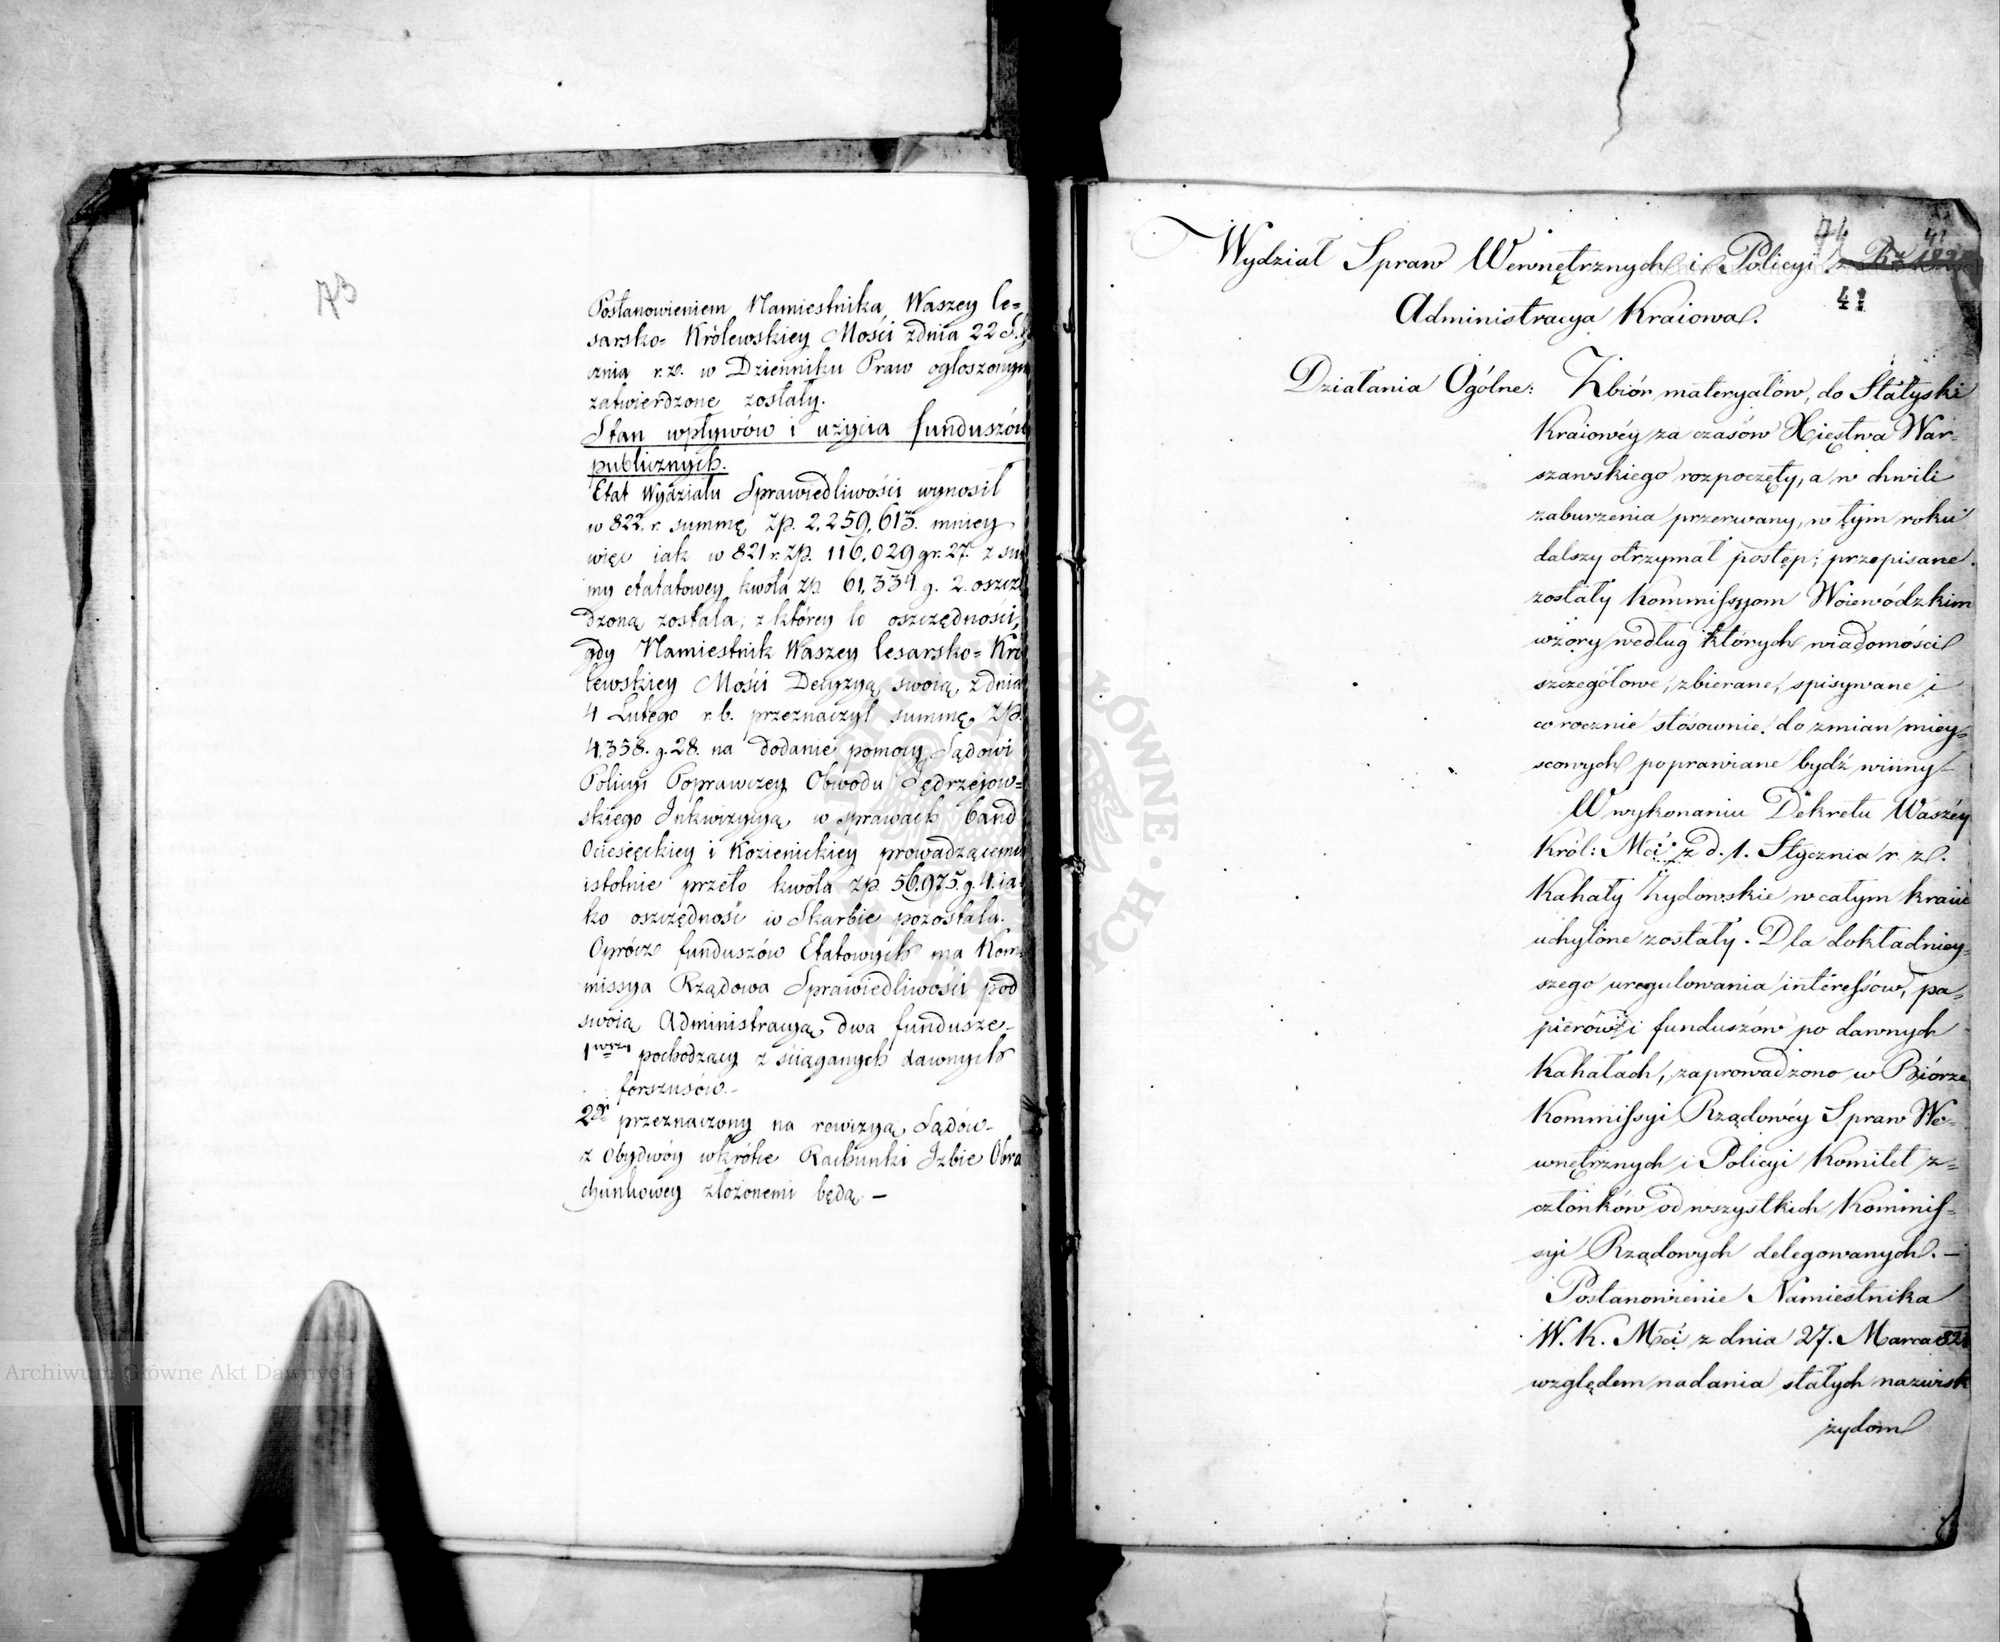 73
Postanowieniem Namiestnika Waszey Ce=
sarsko= Królewskiey Mości z dnia 22 S
cznia r. z. w Dzienniku Praw ogłoszonym
zatwierdzone zostały.
Stan wpływów i użycia funduszów
publicznych.
Etat Wydziału Sprawiedliwości wynosił
w 822. r. summę zp. 2,259,613. mniey
więc iak w 821 r. zp. 116,029 gr. 27. z sum
my etatatowey kwota zp. 61,334. g. 2. oszczę
dzoną została; z którey to oszczędności,
gdy Namiestnik Waszey Cesarsko= Kró
lewskiey Mości Decyzyą swoią z dnia
4 Lutego r. b. przeznaczył summę zp.
4,358. g. 28. na dodanie pomocy Sądowi
Policyi Poprawczey Obwodu Jędrzejow=
skiego Inkwizycyą w sprawach band
Ociesęckiey i Kozienickiey prowadzącemu
istotnie przeto kwota zp. 56,975. g. 4. ia=
ko oszczędność w Skarbie pozostała.
Oprócz funduszów Etatowych ma Kom=
missya Rządowa Sprawiedliwości pod
swoią Administracyą dwa fundusze -
1wszy pochodzący z ściąganych dawnych
forszusów. -
2gi przeznaczony na rewizyą Sądów -
z obydwóy wkrótce Rachunki Izbie Obra
chunkowey złożonemi będą. —
74
41
Wydział Spraw Wewnętrznych i Policyi
41
Administracya Kraiowa.
Działania Ogólne: Zbiór materyałów, do Statyski
Kraiowéy za czasów Xięstwa War=
szawskiego rozpoczęty, a w chwili
zaburzenia przerwany, w tym roku
dalszy otrzymał postęp; przepisane
zostały Kommissyom Woiewódzkim
wzory według których wiadomości
szczegółowe, zbierane, spisywane i
corocznie stósownie do zmian miey=
scowych poprawiane bydź winny -
W wykonaniu Dekretu Waszéy
Król: Mci z d. 1. Stycznia r. z.
Kahały Żydowskie w całym kraiu
uchylone zostały. Dla dokładniey=
szego uregulowania interessów, pa=
pierów i funduszów po dawnych
Kahałach, zaprowadzono w Biórze
Kommissyi Rządowéy Spraw We=
wnętrznych i Policyi Komitet z=
członków od wszystkich Kommis=
syi Rządowych delegowanych. —
Postanowienie Namiestnika
W. K. Mci z dnia 27. Marca 821
względem nadania stałych nazwisk
żydom
Archiwum Główne Akt Dawnych